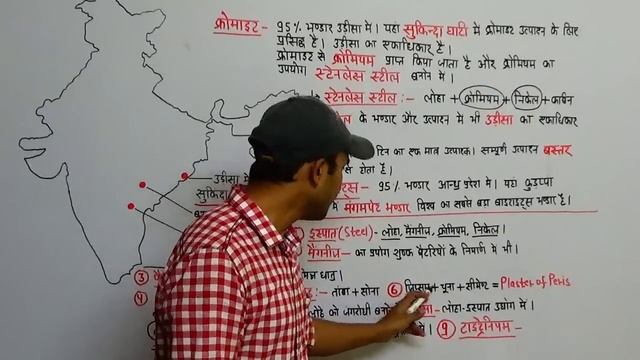 क्रोमाइट - 95% भण्डार उड़ीसा में। यहां सुकिन्दा घाटी में क्रोमाइट उत्पादन के लिए
प्रसिद्ध है। उड़ीसा का एकाधिकार है।
क्रोमाइट से क्रोमियम प्राप्त किया जाता है और क्रोमियम का
उपयोग स्टेनलेस स्टील बनाने में।
स्टेनलेस स्टील :- लोहा + क्रोमियम + निकेल + कार्बन
के भण्डार और उत्पादन में भी उड़ीसा का एकाधिकार
टिन का एक मात्र उत्पादक। सम्पूर्ण उत्पादन बस्तर
से होता है।
उड़ीसा में
सुकिन्दा
95% भण्डार आन्ध्र प्रदेश में। यहां कुडप्पा
में मंगमपेट भण्डार विश्व का सबसे बड़ा बाइराइट्स भण्डार है।
इस्पात (Steel) - लोहा, मैंगनीज, क्रोमियम, निकेल।
मैंगनीज - का उपयोग शुष्क बैटरियों के निर्माण में भी।
③
④
:- तांबा + सोना ⑥ जिप्सम + चूना + सीमेंट = Plaster of Peris
लोहे को जंगरोधी
- लोहा-इस्पात उद्योग में।
में। ⑨ टाइटेनियम -